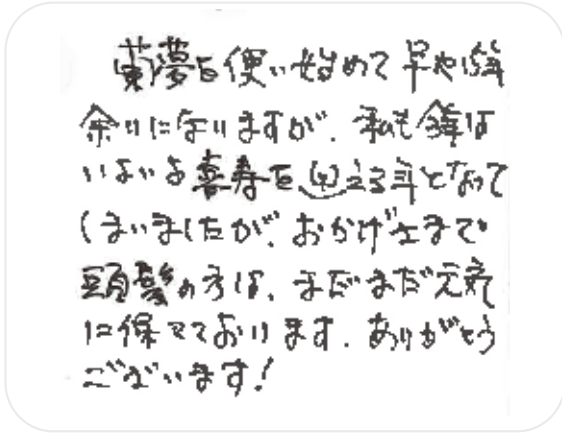 蘭夢を使い始めて早や15年
余りになりますが、私も今年は
いよいよ喜寿を迎える年となって
しまいましたが、おかげさまで
頭髪の方は、まだまだ元気
に保てております。ありがとう
ございます!